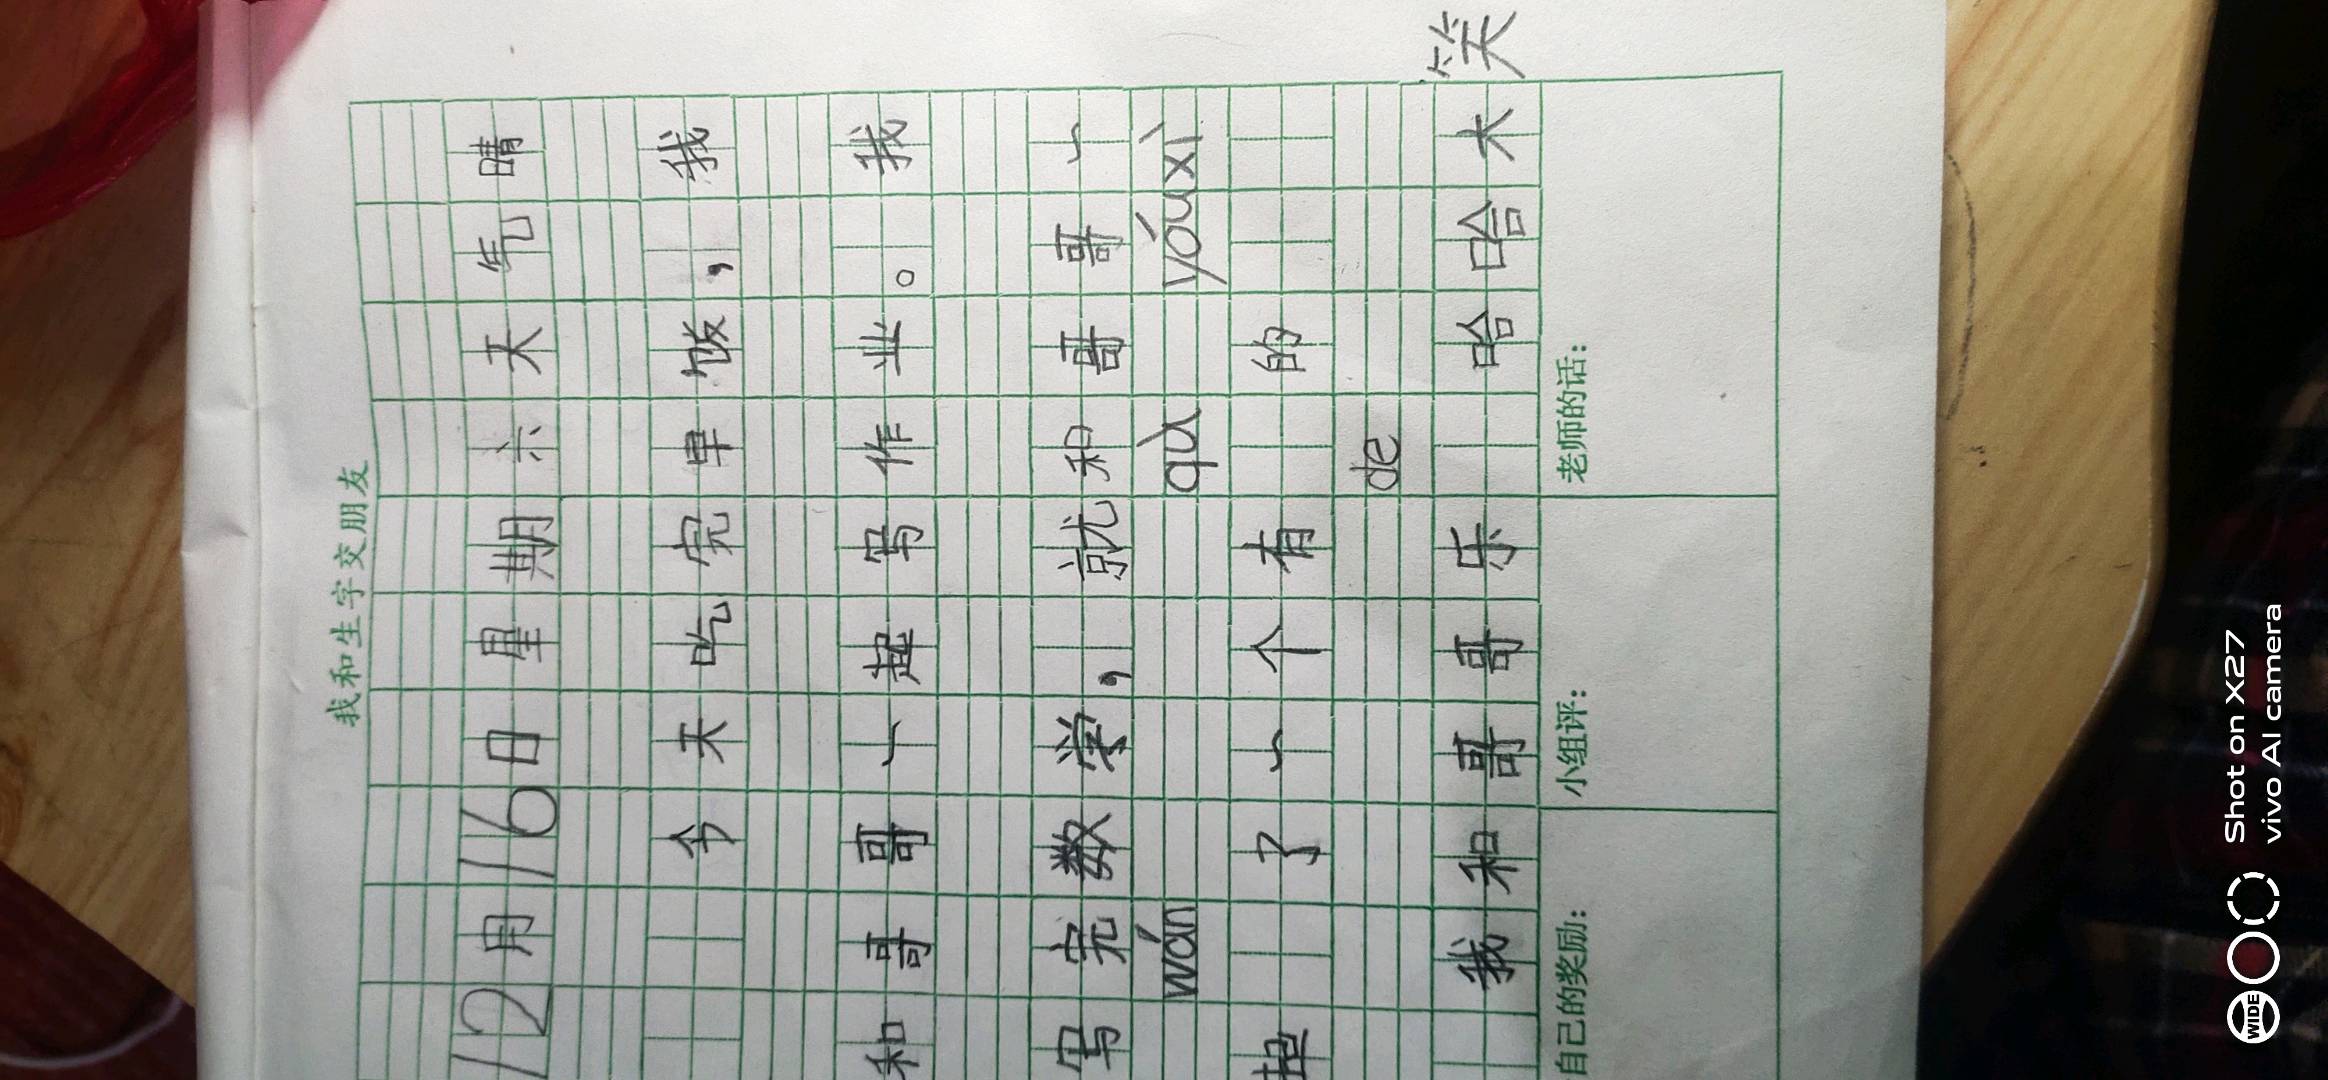 我和生字交朋友
12月16日星期六天气晴
今天吃完早饭，我
和哥哥一起写作业。我
写完数学，就和哥哥一
wán qù yóuxì
起 了一个有 的
de
我和哥哥乐 哈哈大笑
自己的奖励： 小组评： 老师的话：
WIDE
Shot on X27
vivo AI camera